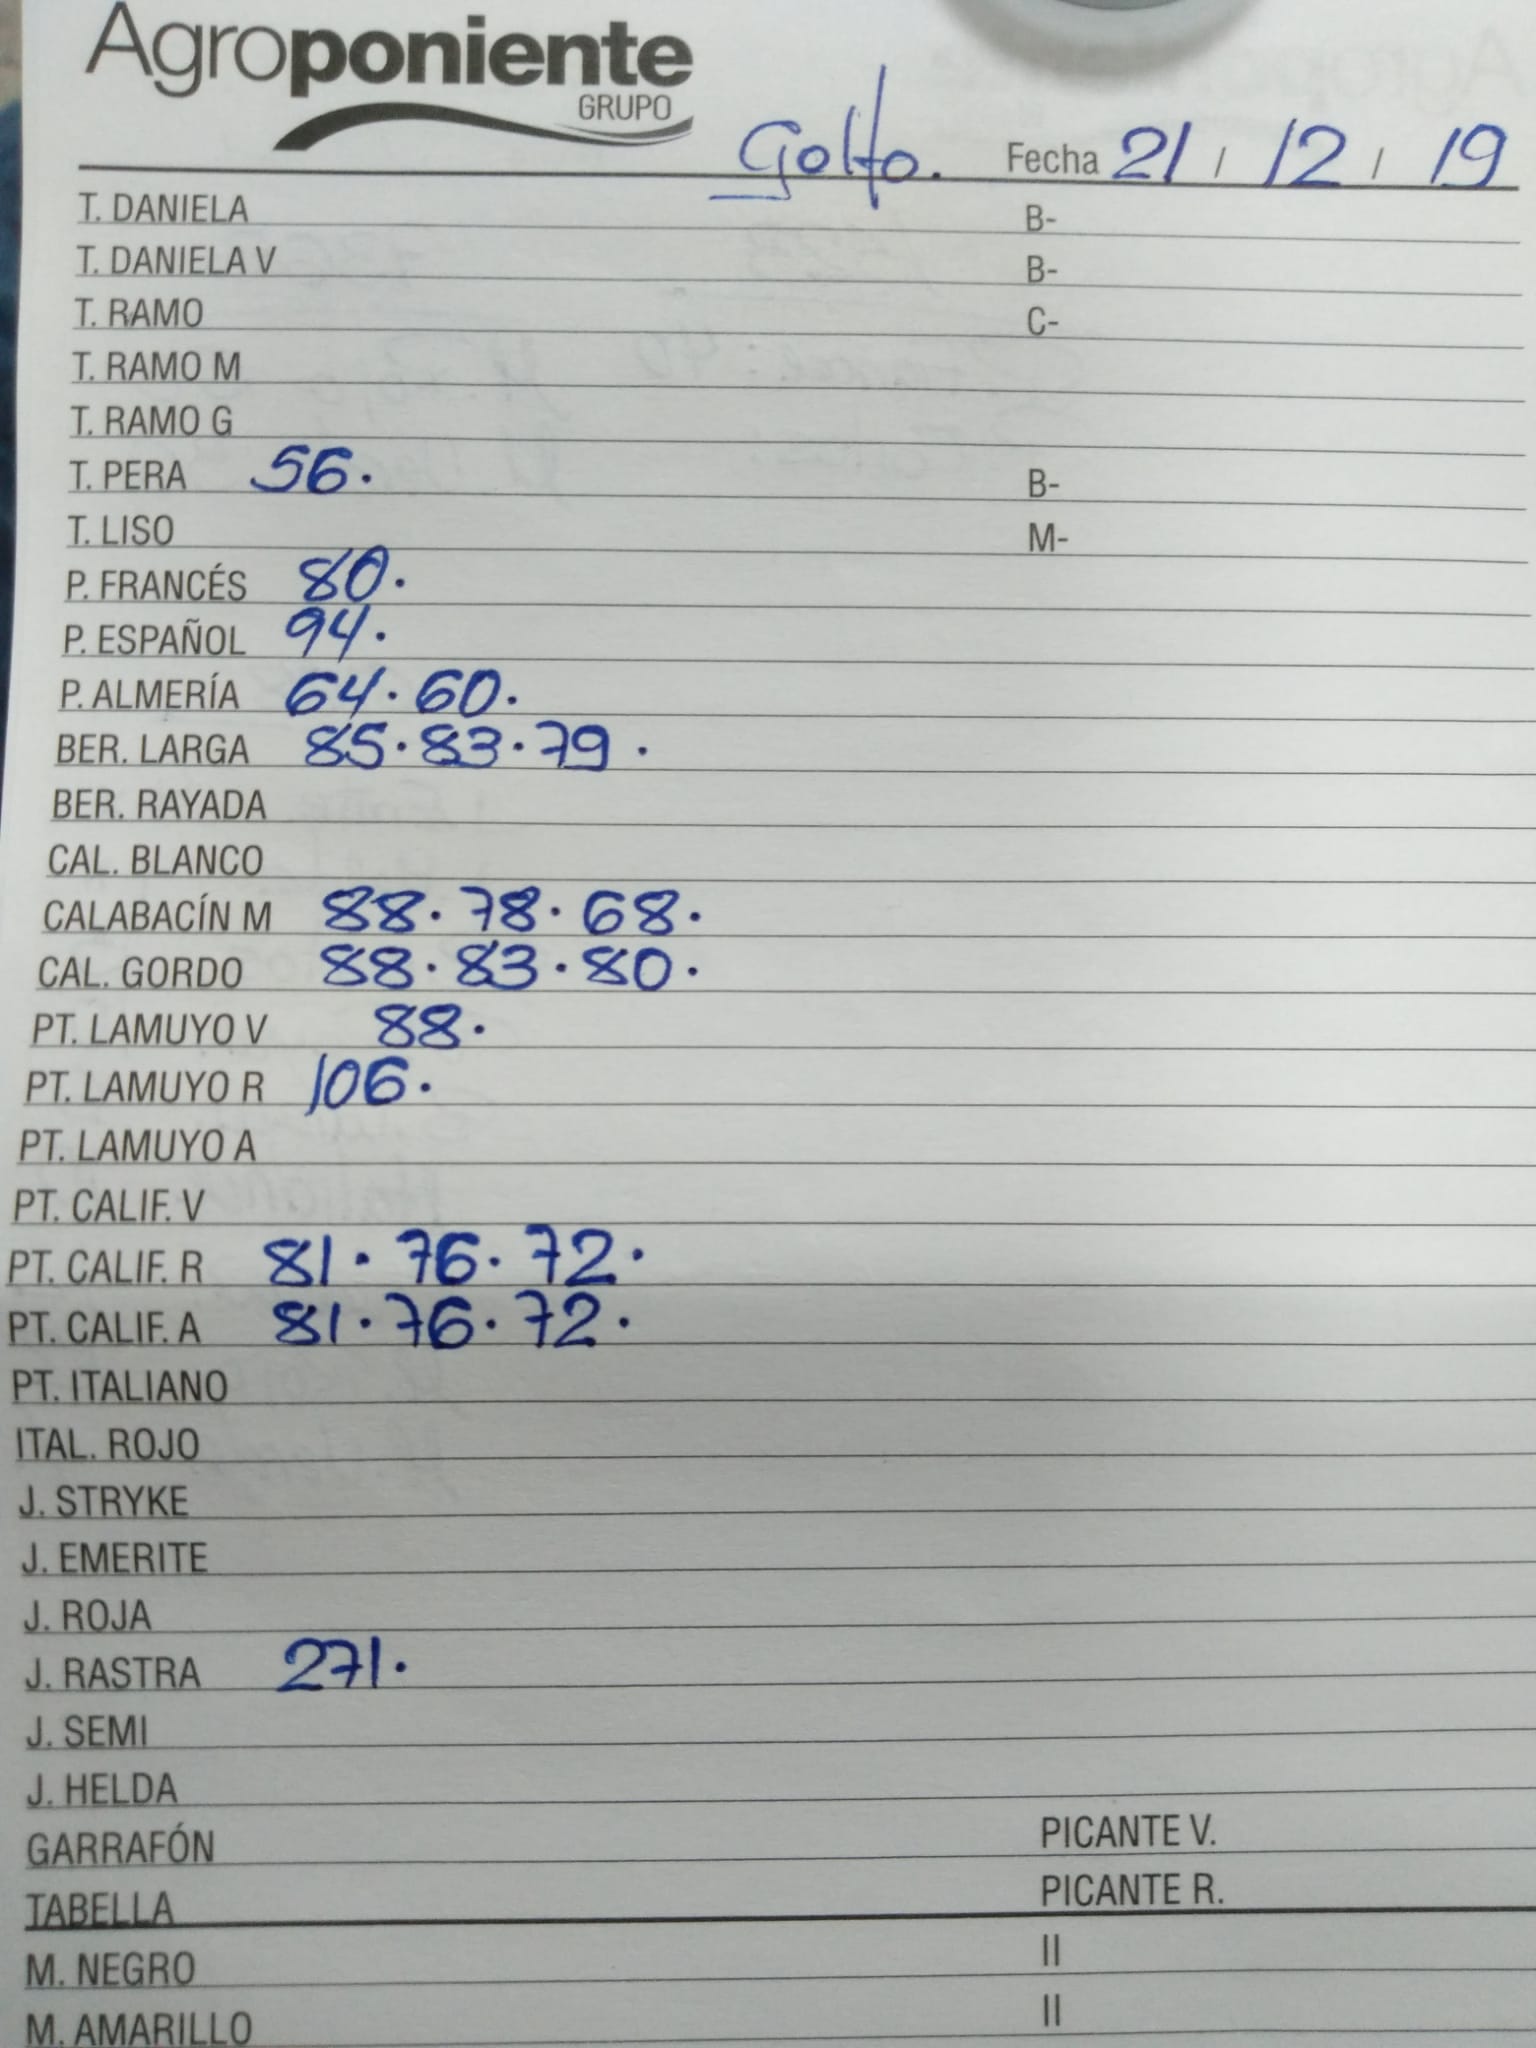 Agroponiente
GRUPO
Golfo. Fecha 21 / 12 / 19
T. DANIELA B-
T. DANIELA V B-
T. RAMO C-
T. RAMO M
T. RAMO G
T. PERA 56. B-
T. LISO M-
P. FRANCÉS 80.
P. ESPAÑOL 94.
P. ALMERÍA 64. 60.
BER. LARGA 85. 83. 79.
BER. RAYADA
CAL. BLANCO
CALABACÍN M 88. 78. 68.
CAL. GORDO 88. 83. 80.
PT. LAMUYO V 88.
PT. LAMUYO R 106.
PT. LAMUYO A
PT. CALIF. V
PT. CALIF. R 81. 76. 72.
PT. CALIF. A 81. 76. 72.
PT. ITALIANO
ITAL. ROJO
J. STRYKE
J. EMERITE
J. ROJA
J. RASTRA 271.
J. SEMI
J. HELDA
GARRAFÓN PICANTE V.
TABELLA PICANTE R.
M. NEGRO II
M. AMARILLO II